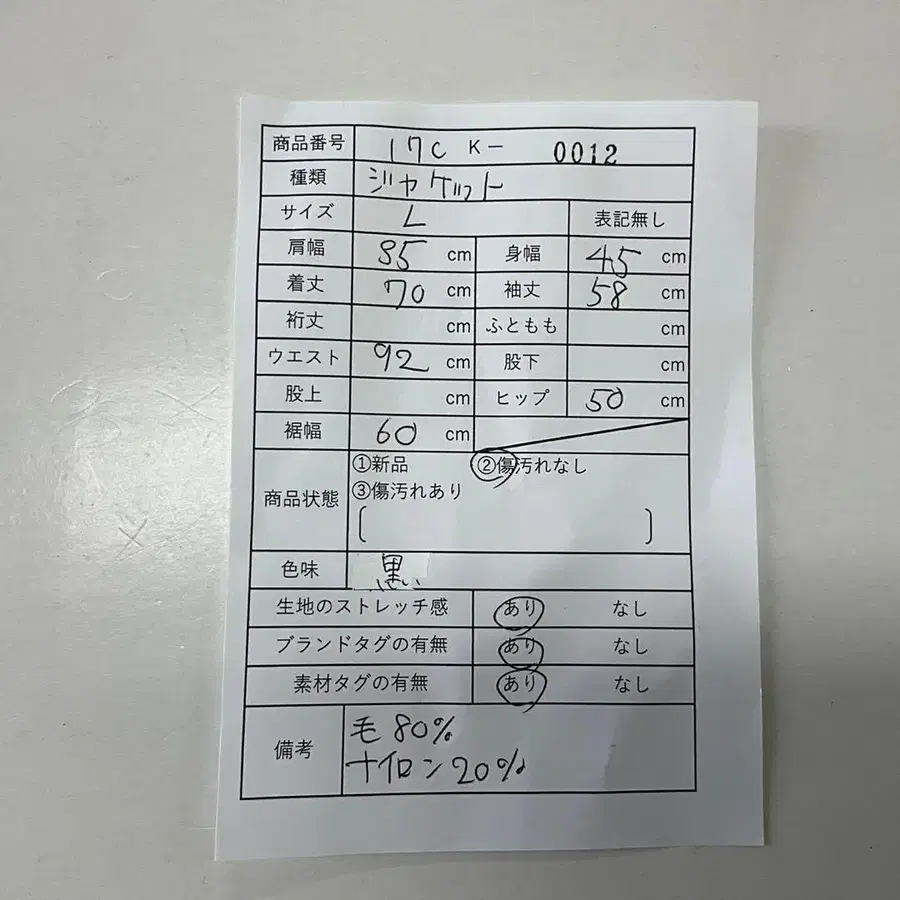 商品番号 17C K- 0012
種類 ジャケット
サイズ L 表記無し
肩幅 35 cm 身幅 45 cm
着丈 70 cm 袖丈 58 cm
裄丈 cm ふともも cm
ウエスト 92 cm 股下 cm
股上 cm ヒップ 50 cm
裾幅 60 cm
①新品 ②傷汚れなし
商品状態 ③傷汚れあり
[ ]
色味 黒
生地のストレッチ感 あり なし
ブランドタグの有無 あり なし
素材タグの有無 あり なし
備考 毛 80%
ナイロン 20%